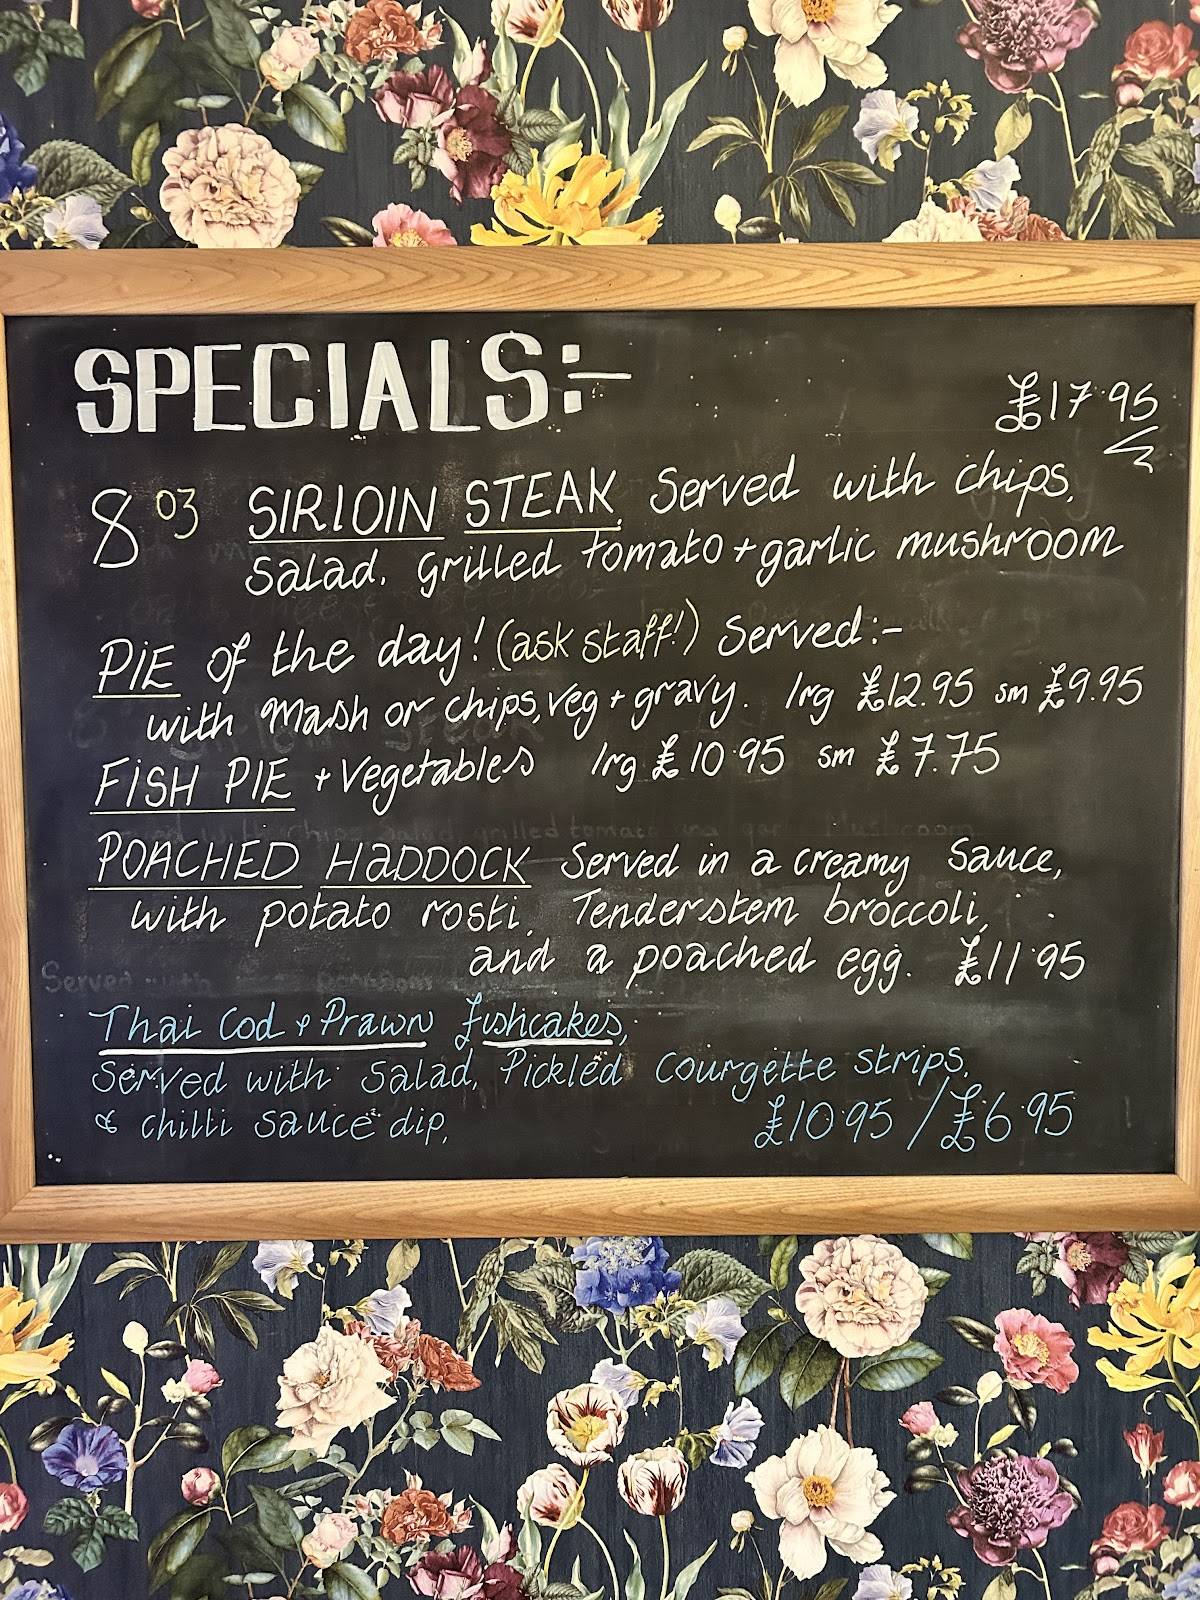 SPECIALS:-
£17.95
8 oz SIRLOIN STEAK Served with chips,
Salad. grilled tomato + garlic mushroom
PIE of the day! (ask staff!) Served:-
with mash or chips, veg + gravy. lrg £12.95 sm £9.95
FISH PIE + Vegetables lrg £10.95 sm £7.75
POACHED HADDOCK Served in a creamy Sauce,
with potato rosti, Tenderstem broccoli,
and a poached egg. £11.95
Thai Cod & Prawn fishcakes,
Served with Salad, Pickled Courgette Strips,
& chilli sauce dip,
£10.95 / £6.95